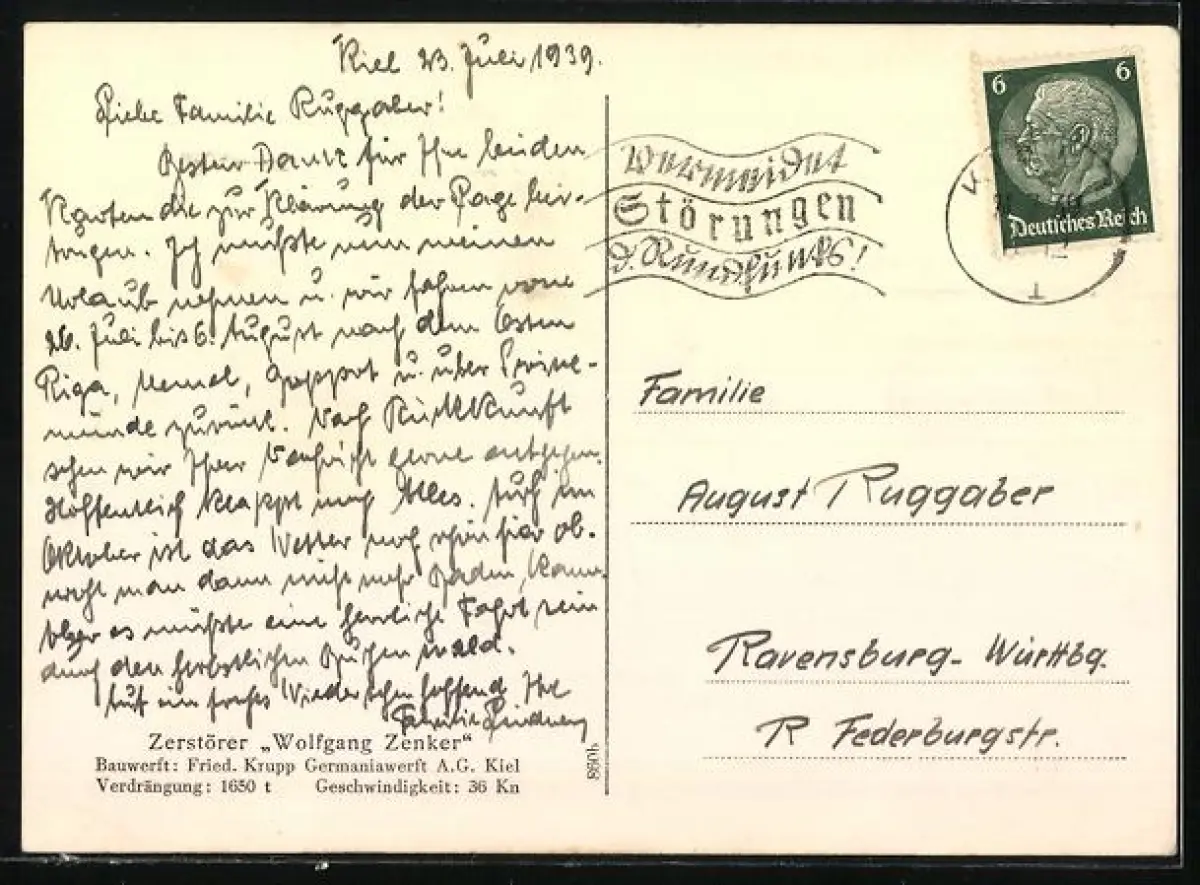 Kiel 23. Juli 1939.
Liebe Familie Ruggaber!
Besten Dank für Ihre beiden
Karten die zur Klärung der Lage bei-
tragen. Ich mußte nun meinen
Urlaub nehmen u. wir fahren vom
26. Juli bis 6. August nach dem Osten
Riga, Memel, Zoppot u. über Swine-
münde zurück. Nach Rückkunft
sehen wir Ihrer Nachricht gerne entgegen.
Hoffentlich klappt noch Alles. Auch im
Oktober ist das Wetter noch schön hier ob-
wohl man dann nicht mehr Baden kann.
Aber es müßte eine herrliche Fahrt sein
durch den herbstlichen Buchenwald.
Auf ein frohes Wiedersehen hoffend Ihre
Familie
Zerstörer „Wolfgang Zenker“
Bauwerft: Fried. Krupp Germaniawerft A.G. Kiel
Verdrängung: 1650 t Geschwindigkeit: 36 Kn
Vermeidet
Störungen
d. Rundfunks!
6 6
Deutsches Reich
1
Familie
August Ruggaber
Ravensburg- Württbg.
R Federburgstr.